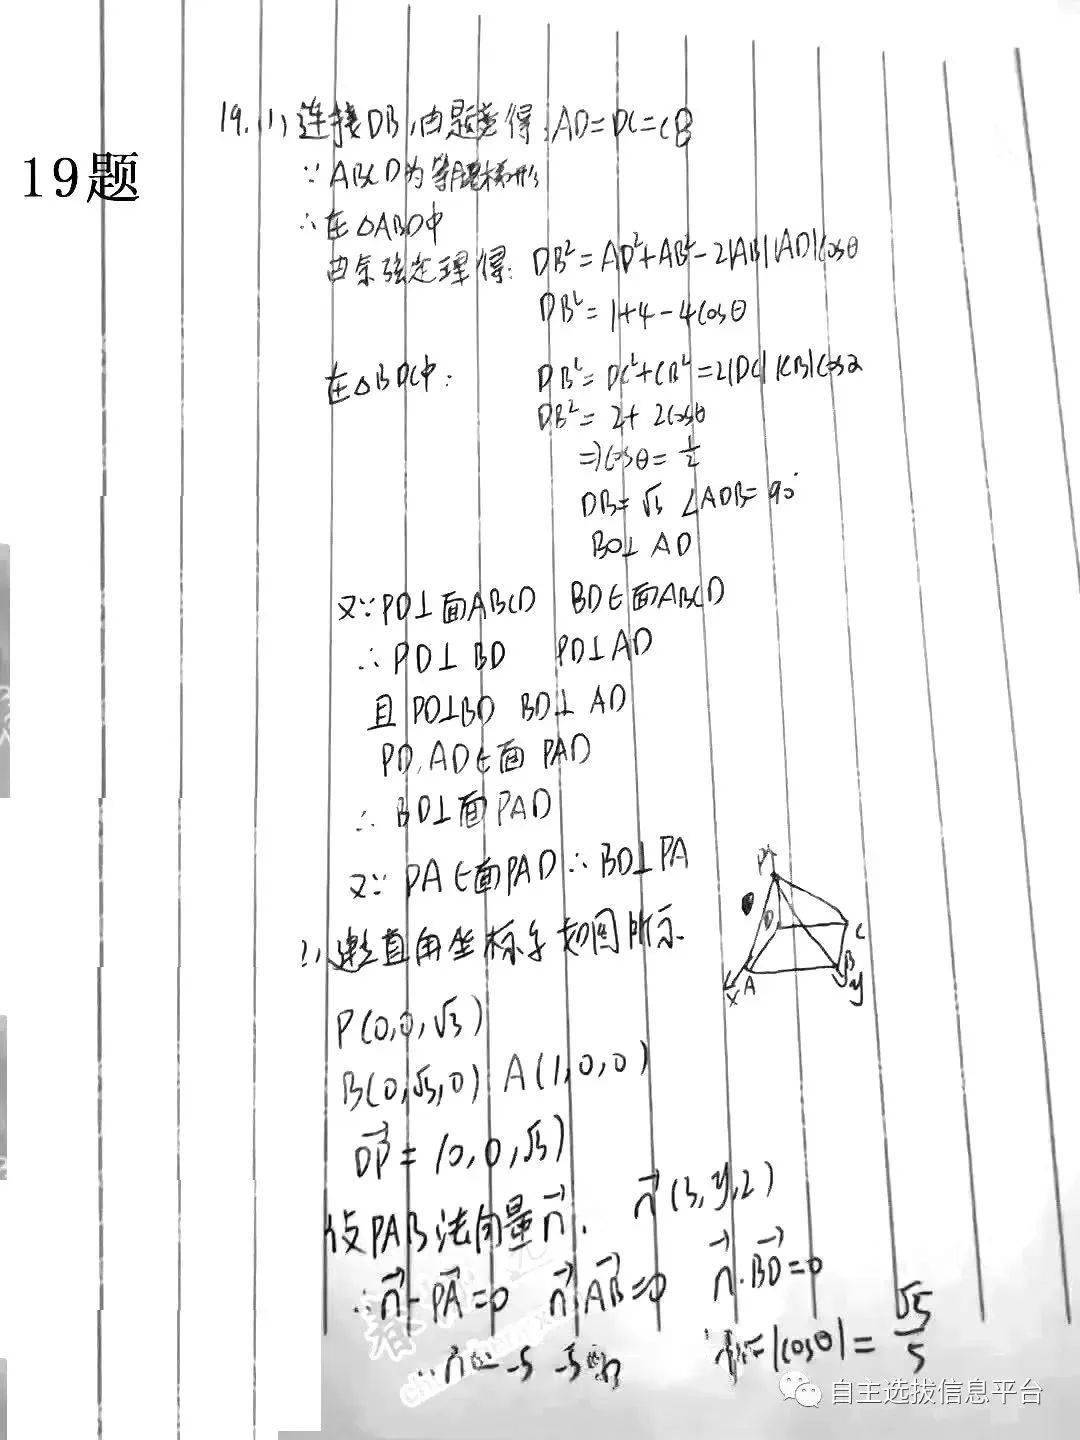 19题
19.(1)连接DB,由题意得:AD=DC=CB
∵ABCD为等腰梯形
∴在△ABD中
由余弦定理得: DB²=AD²+AB²-2|AB||AD|cosθ
DB²=1+4-4cosθ
在△BDC中: DB²=DC²+CB²=2|DC||CB|cos2
DB²=2+2cosθ
⇒cosθ=1/2
DB=√3 ∠ADB=90°
BD⊥AD
又∵PD⊥面ABCD BD∈面ABCD
∴PD⊥BD PD⊥AD
且PD⊥BD BD⊥AD
PD,AD∈面PAD
∴BD⊥面PAD
又∵PA∈面PAD∴BD⊥PA
P
D
C
B
A
x
y
2)建立直角坐标系如图所示.
P(0,0,√3)
B(0,√3,0) A(1,0,0)
DP→=(0,0,√3)
设PAB法向量n→. n→(3,y,2)
∴n→·PA→=0 n→·AB→=0 n→·BD→=0
|cosθ|=√5/5
自主选拔信息平台